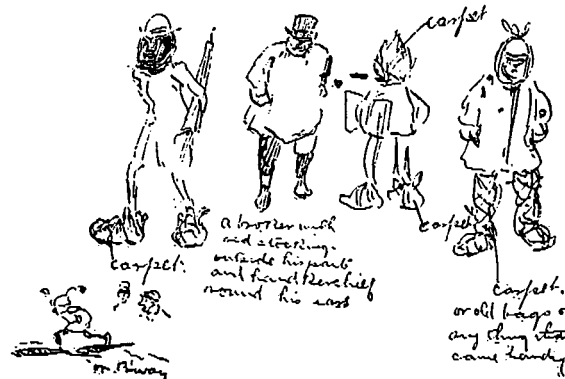 carpet
carpet.
a broker with
red stockings
outside his pants
and handkerchief
round his
carpet
carpet.
or old bags o
any thing tha
came handy
B'way